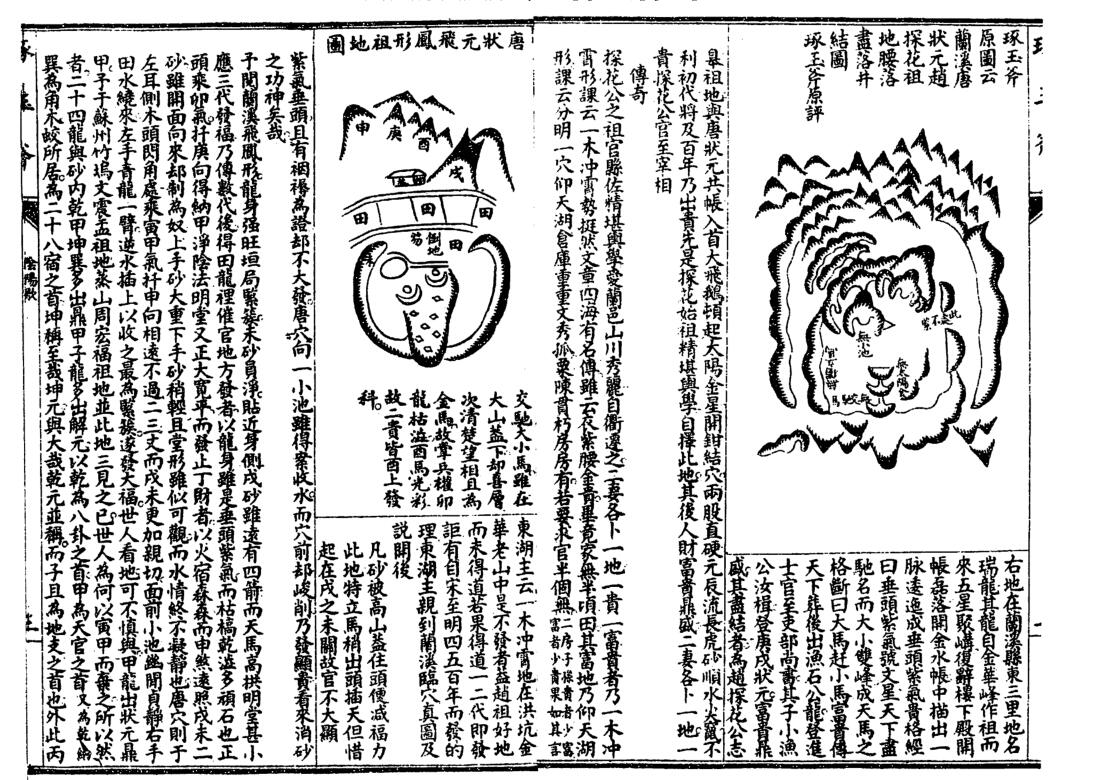 琢玉斧
原圖云
蘭溪唐
狀元趙
探花祖
地腰落
盡落并
結圖
琢玉斧原評
右地在蘭溪縣東三里地名
瑞龍其龍自金華峰作祖而
來五星聚講復辭樓下殿開
帳磊落開金水帳中描出一
脉逶迤成垂頭紫氣貴格經
曰垂頭紫氣號文星天下盡
馳名而大小雙峰成天馬之
格斷曰大馬赶小馬富貴傳
天下葬後出漁石公龍登進
士官至吏部尚書其子小漁
公汝楫登庚戌狀元富貴鼎
盛其盡結者為趙探花公志
臯祖地與唐狀元共帳入首大飛鵝頓起太陽金星開鉗結穴兩股直硬元辰流長虎砂順水尖竄不
利初代將及百年乃出貴先是探花始祖精堪輿學自擇此地其後人財富貴鼎盛二妻各卜一地一
貴探花公官至宰相
傳奇
探花公之祖官縣佐精堪輿學愛蘭邑山川秀麗自衢遷之二妻各卜一地一貴一富貴者乃一木冲
霄形課云一木冲霄勢挺然文章四海有名傳雖云衣紫腰金貴畢竟家無半頃田其富地乃仰天湖
形課云分明一穴仰天湖倉庫重重文秀孤粟陳貫朽房房有若要求官半個無
唐狀元飛鳳形祖地圖
申
庚
酉
戌
田
田
田
田
倒地
笏
交馳大小馬雖在
大山蓋下却喜層
次清楚望相且為
金馬故掌兵權卯
龍枯溢酉馬光彩
故二貴皆酉上發
科
東湖主云一木冲霄地在洪坑金
華老山中是不發者蓋趙祖好地
而未得道若果得道一二代即發
詎有自宋至明四五百年而發的
理東湖主親到蘭溪臨穴真圖及
說開後
凡砂被高山蓋住頭便減福力
此地特立馬稍出頭插天但惜
起在戌之未關故官不大顯
紫氣垂頭且有裀褥為證却不大發唐穴向一小池雖得案收水而穴前却峻削乃發顯貴看來消砂
之功神矣哉
予閱蘭溪飛鳳形龍身强旺垣局緊簇未砂員淨貼近身側戌砂雖遠有四箭而天馬高拱明堂甚小
應三代發福乃傳數代後得田龍裡催官地方發者以龍身雖是垂頭紫氣而枯槁乾溢多頑石也正
頭乘卯氣扦庚向得納甲淨陰法明堂又正大寬平而發止丁財者以火宿森森而申煞遠照戌未二
砂雖開面向來却制為奴上手砂大重下手砂稍輕且堂形雖似可觀而水情終不凝靜也唐穴則于
左耳側木頭閃角處乘寅甲氣扦申向相遠不過二三丈而戌未更加親切面前小池幽閒貞靜右手
田水繞來左手青龍一臂逆水插上以收之最為緊簇遂發大福世人看地可不慎與甲龍出狀元鼎
甲予于蘇州竹塢文震孟祖地蒸山周宏福祖地並此地三見之巳世人為何以寅甲而棄之所以然
者二十四龍與砂内乾甲坤巽多出鼎甲子龍多出解元以乾為八卦之首甲為天官之首又為乾納
巽為角木蛟所居為二十八宿之首坤稱至哉坤元與大哉乾元並稱而子且為地支之首也外此丙